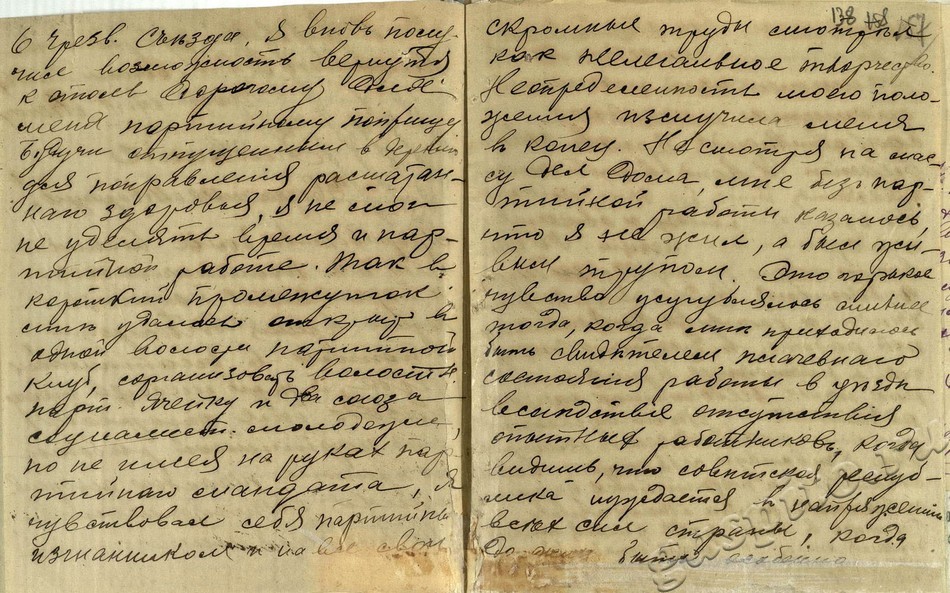 6 чрезв. Съезда, я вновь полу-
чил возможность вернутся
к столь дорогому для
меня партийному поприщу
Будучи отпущенным в
для поправления расшатан-
наго здоровья, я не смог
не уделять время и пар-
тийной работе. Так в
короткий промежуток
мне удалось открыт в
одной волости партийной
клуб, сорганизовать волостн.
парт. ячейку и два союза
социалист. молодежи,
но не имея на руках пар-
тийнаго мандата, я
чувствовал себя партийны
изгнанником и на все свои
138
скромные труды смотрел
как нелегальное творчество.
Неопределенность моего поло-
жения измучила меня
в конец. Не смотря на мас-
су дел дома, мне без пар-
тийной работы казалось,
что я не жил, а был жи-
вым трупом. Это горькое
чувство усугублялось сильнее
тогда, когда мне приходилось
быть свидетелем плачевнаго
состояния работы в уезде
вследствие отсутствия
опытных работников, когда
видишь, что советская респуб-
лика нуждается в напряжении
всех сил страны, когда
быть